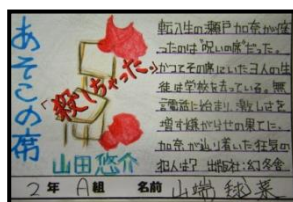 あそこの席
「殺しちゃった。」
山田悠介
転入生の瀬戸加奈が座
ったのは"呪いの席"だった。
かつてその席にいた3人の生
徒は学校を去っている。無
言電話に始まり、激しさを
増す嫌がらせの果てに。
加奈が辿り着いた狂気の
犯人は? 出版社:幻冬舎
2年 A組 名前 山端 純菜